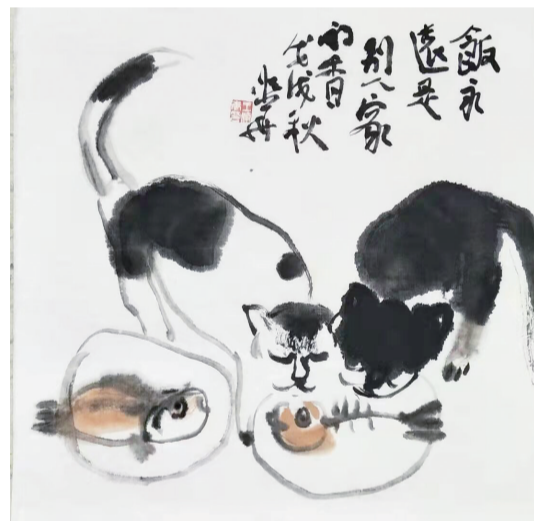 飯永
遠是
别人家
的香
戊戌秋